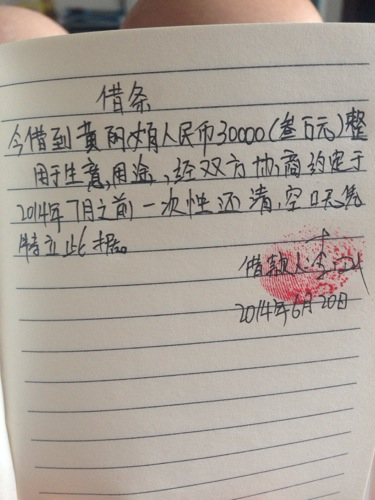 借条
今借到黄丽娟人民币30000(叁百元)整
用于生意,用途,经双方协商约定于
2014年7月之前一次性还清,空口无凭
特立此据。
借款人:李
2014年6月20日